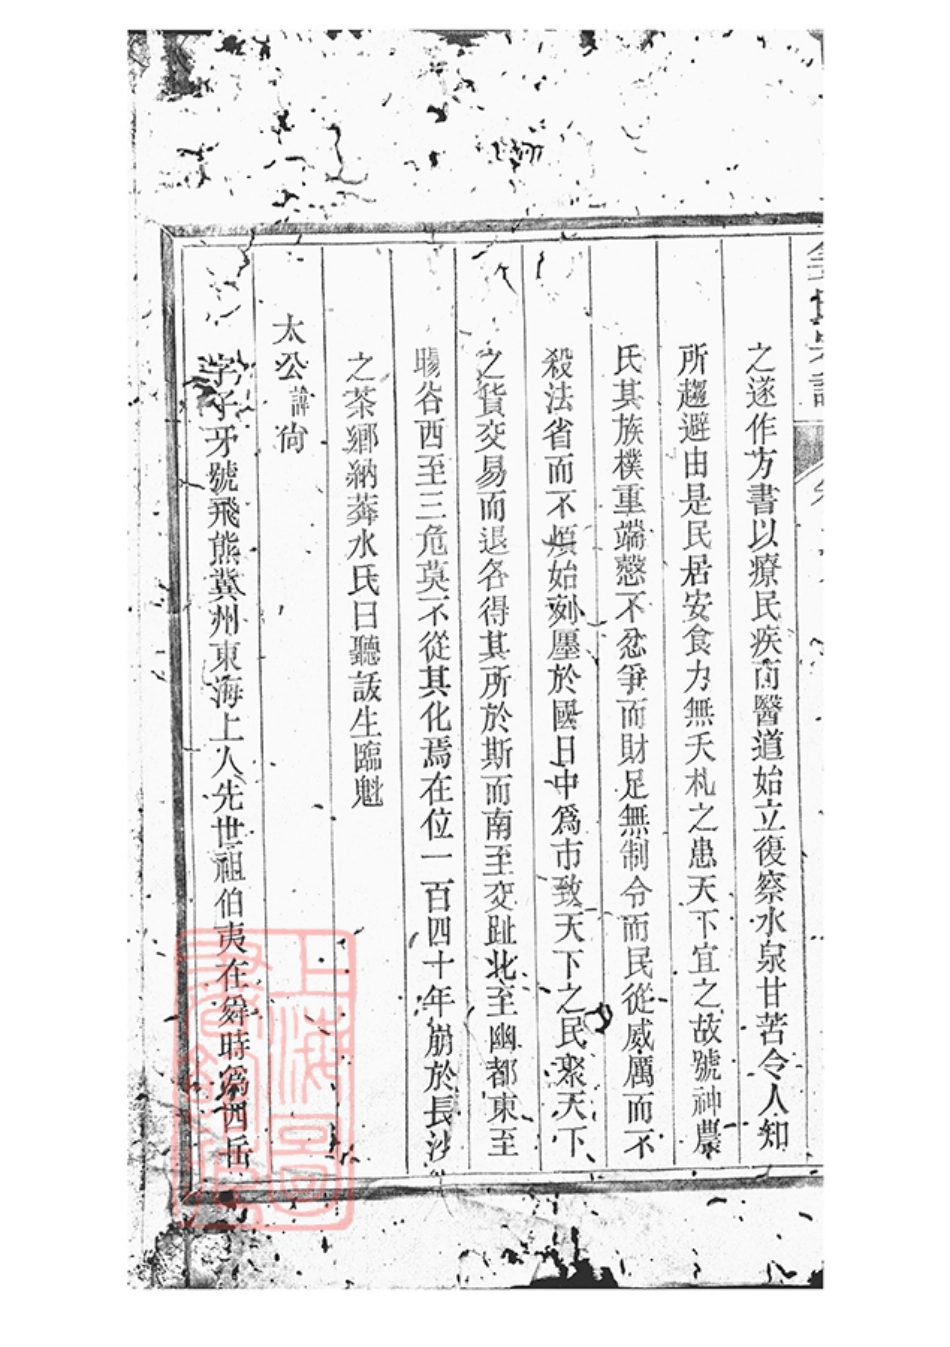 之遂作方書以療民疾而醫道始立復察水泉甘苦令人知
所趨避由是民居安食力無夭札之患天下宜之故號神農
氏其族樸重端慤不忿爭而財足無制令而民從威厲而不
殺法省而不煩始列廛於國日中為市致天下之民聚天下
之貨交易而退各得其所於斯而南至交趾北至幽都東至
暘谷西至三危莫不從其化焉在位一百四十年崩於長沙
之茶鄉納莾水氏曰聽詙生臨魁
太公諱尙
字子牙號飛熊冀州東海上人先世祖伯夷在舜時為四岳
上海圖